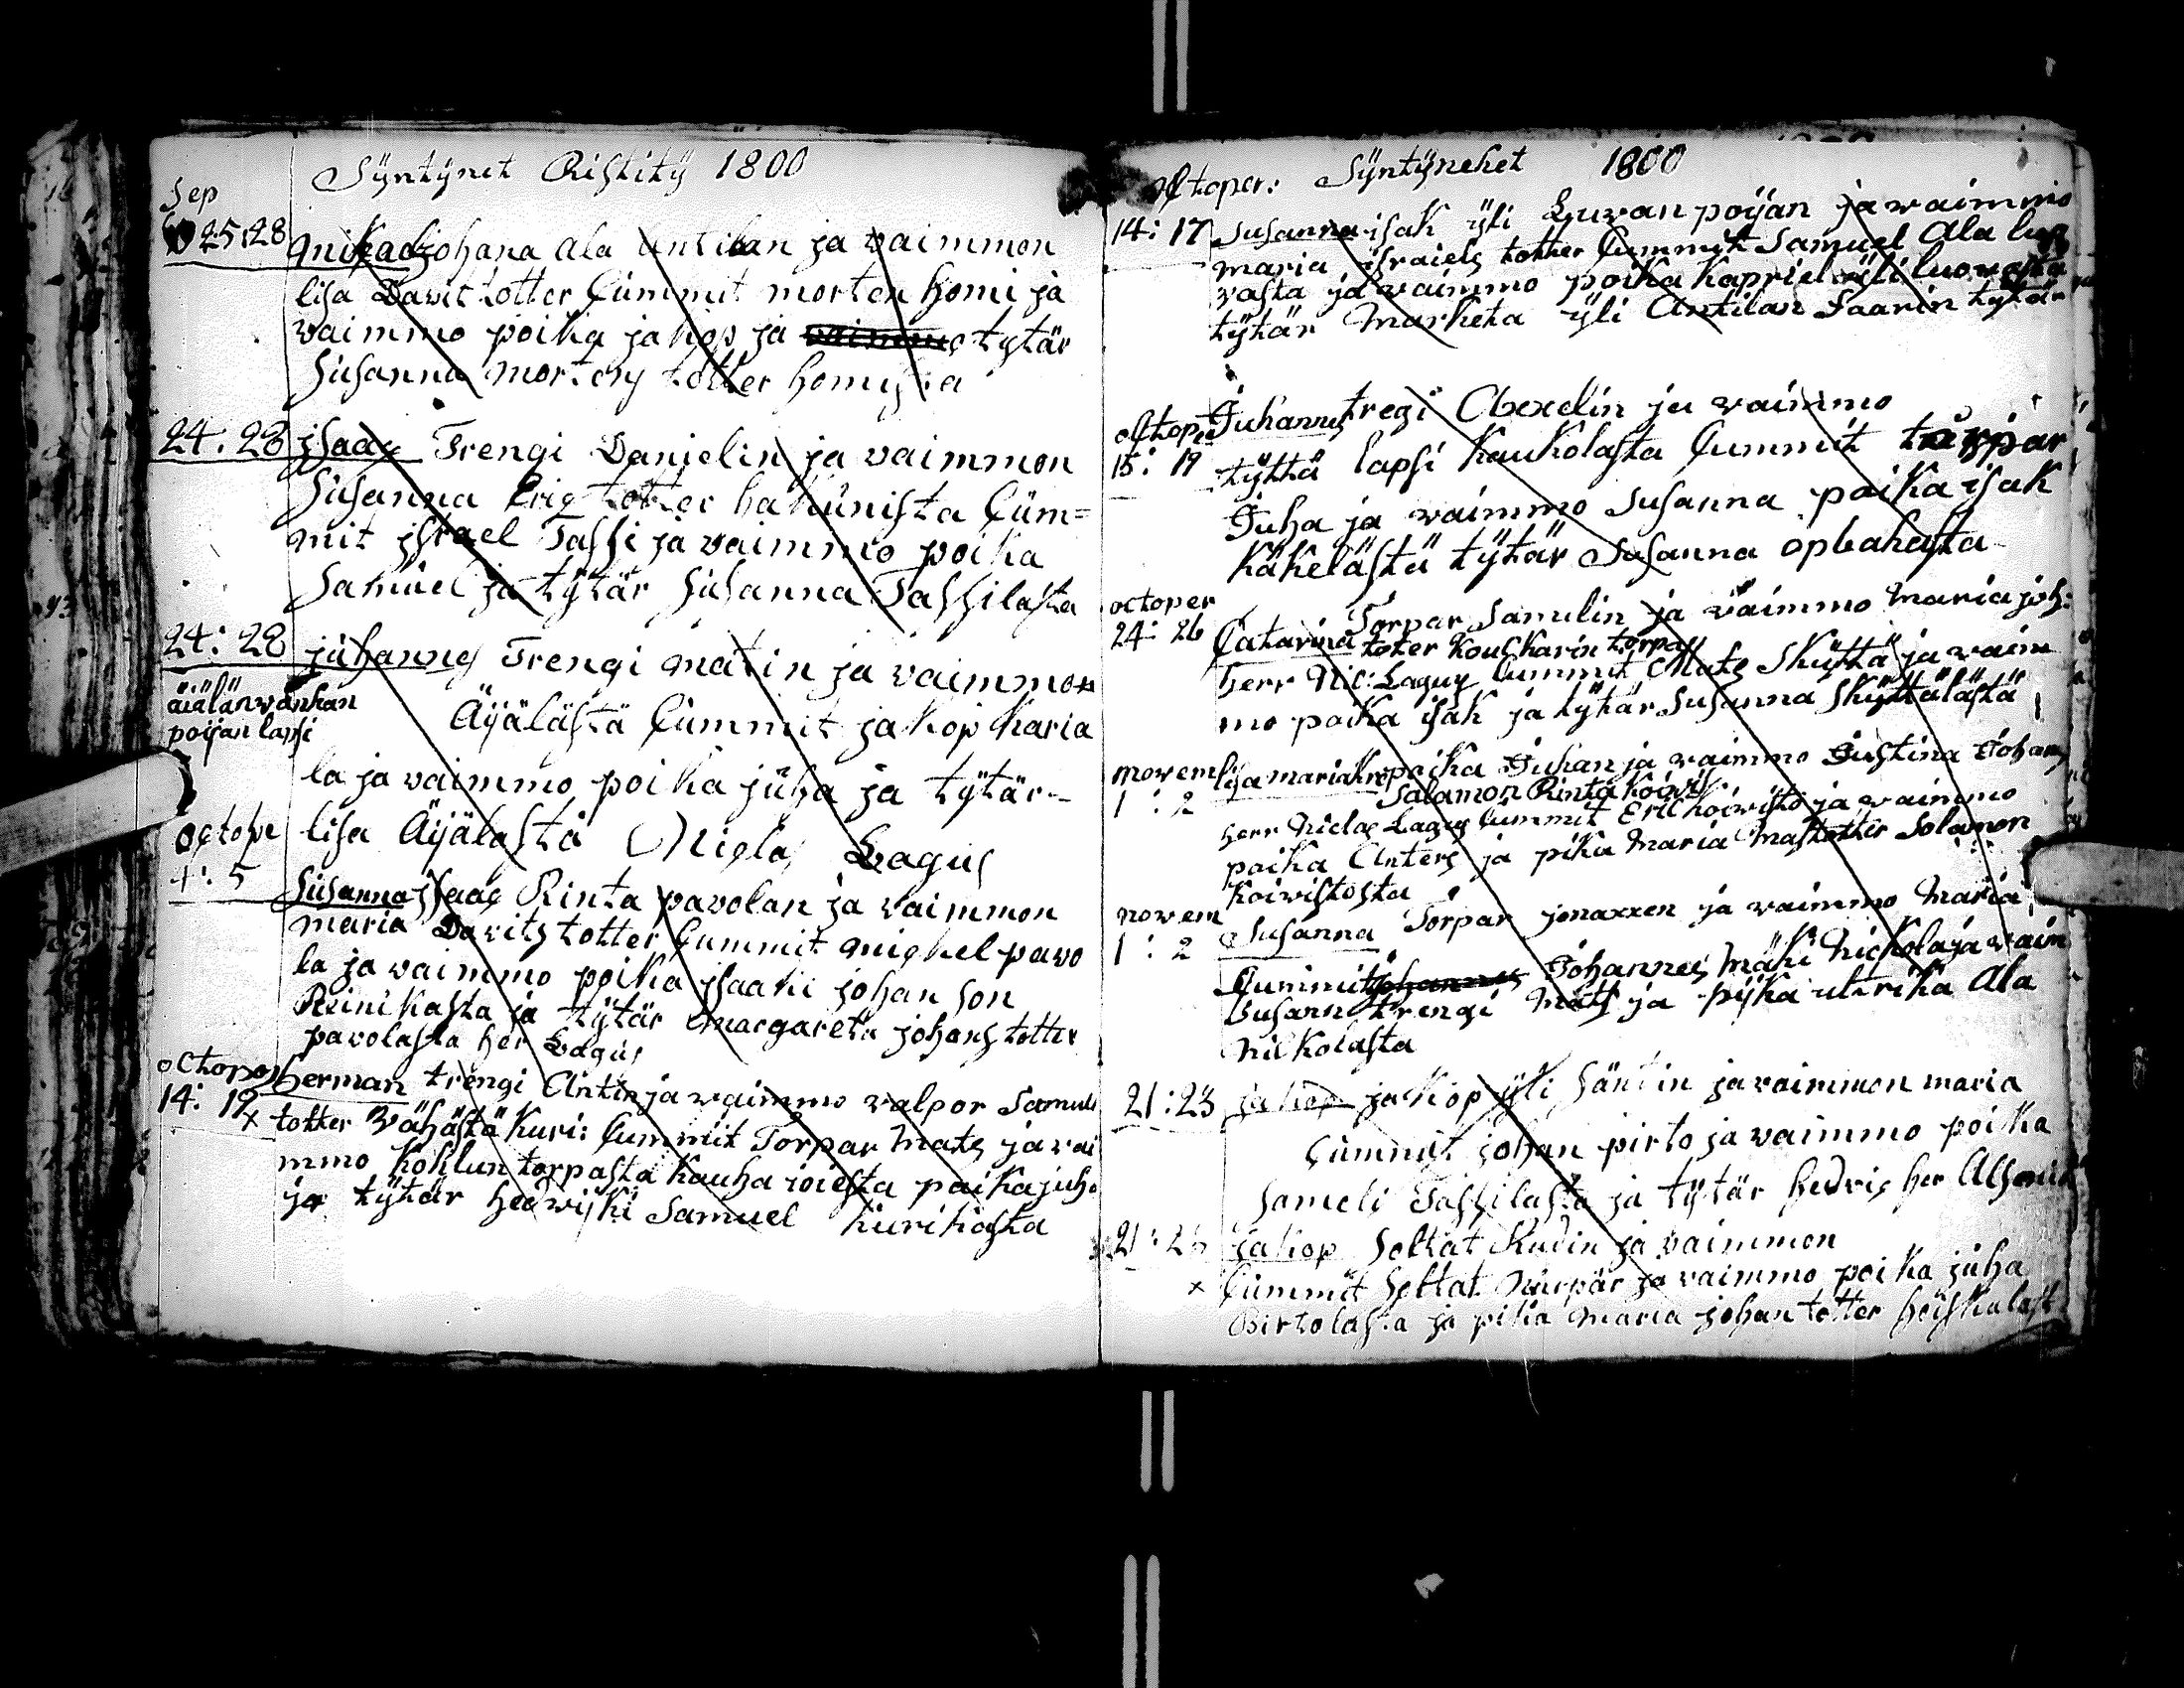 Syntynet Ristity 1800
Sep
25:28 johana ala antilan ja vaimmon
lisa Davit totter Cummit morten homi ja
vaimmo poika jakop ja vaimmo tytär
Susanna mortens totter homista
24:28 jsaac Trengi Danielin ja vaimmon
Susanna Eric totter hakunista Cüm=
mit jsrael Tassi ja vaimmo poika
Samuel ja tytär Susanna Tassilasta
24:28 juhannes Trengi matin ja vaimmon
äiälän wanhan
poijan lapsi
Äijälästä Cummit jakop Karia
la ja vaimmo poika juha ja tytär
lisa Äijälästä Niclas Lagus
octobe
4:5 Susanna jsaac Rinta pavolan ja vaimmon
maria Davits totter Cummit michel pavo
la ja vaimmo poika jsaaki johan son
Reinikasta ja tytär margareta johans totter
pavolasta her Lagus
octoper
14:19 herman trengi Antin ja waimmo valpor Samuli
x totter Wähästä Kuri: Cummit Torpar Mats ja vai
mmo Kohlun torpasta Kauha ioiesta paika juh
ja tytär hedwiski Samuel Kurikasta
octoper: Syntynehet 1800
14:17 Susanna isak yli Luwan poijan ja waimmo
maria israiels totter Cummit Samuel Ala luo
vasta ja waimmo poika Kapriel yli luowasta
tytär Marketa yli Antilan Saarin tytär
octoper
15:19 Juhannes tregi Axelin ja vaimmo
tyttä lapsi Kaukolasta Cummit torppar
Juha ja waimmo Susanna paika isak
Käkelästä tytär Susanna opbahasta
octoper
24:26 Torpar Samulin ja waimmo Maria joh:
Catarina toter Kouckarin torpas
herr Nic: Lagus Cummit Mats Skyttä ja waim
mo paika isak ja tytär Susanna Skyttälästä
novem
1:2 lisa maria paika Juhan ja waimmo Justina Johans
Salamon Rinta Koiwis
herr Niclas Lagus Cummit Eric Koiwisto ja waimmo
paika Anters ja pika Maria Mastotter Solamon
Koiwistosta
novem
1:2 Susanna Torpar jonaxxen ja waimmo Maria
Cummit johannes Johannes Mäki Nickola ja waim
Susann trengi Mats ja pyka ulrika Ala
Nickolasta
21:23 jakop jakop yli säntin ja vaimmon maria
Cummit johan pirto ja vaimmo poika
Sameli Tassilasta ja tytär hedvis her
21:25 jakop Soltat Kudin ja vaimmon
x Cummit Soltat ja vaimmo poika juha
Birtolasta ja pika maria johan totter